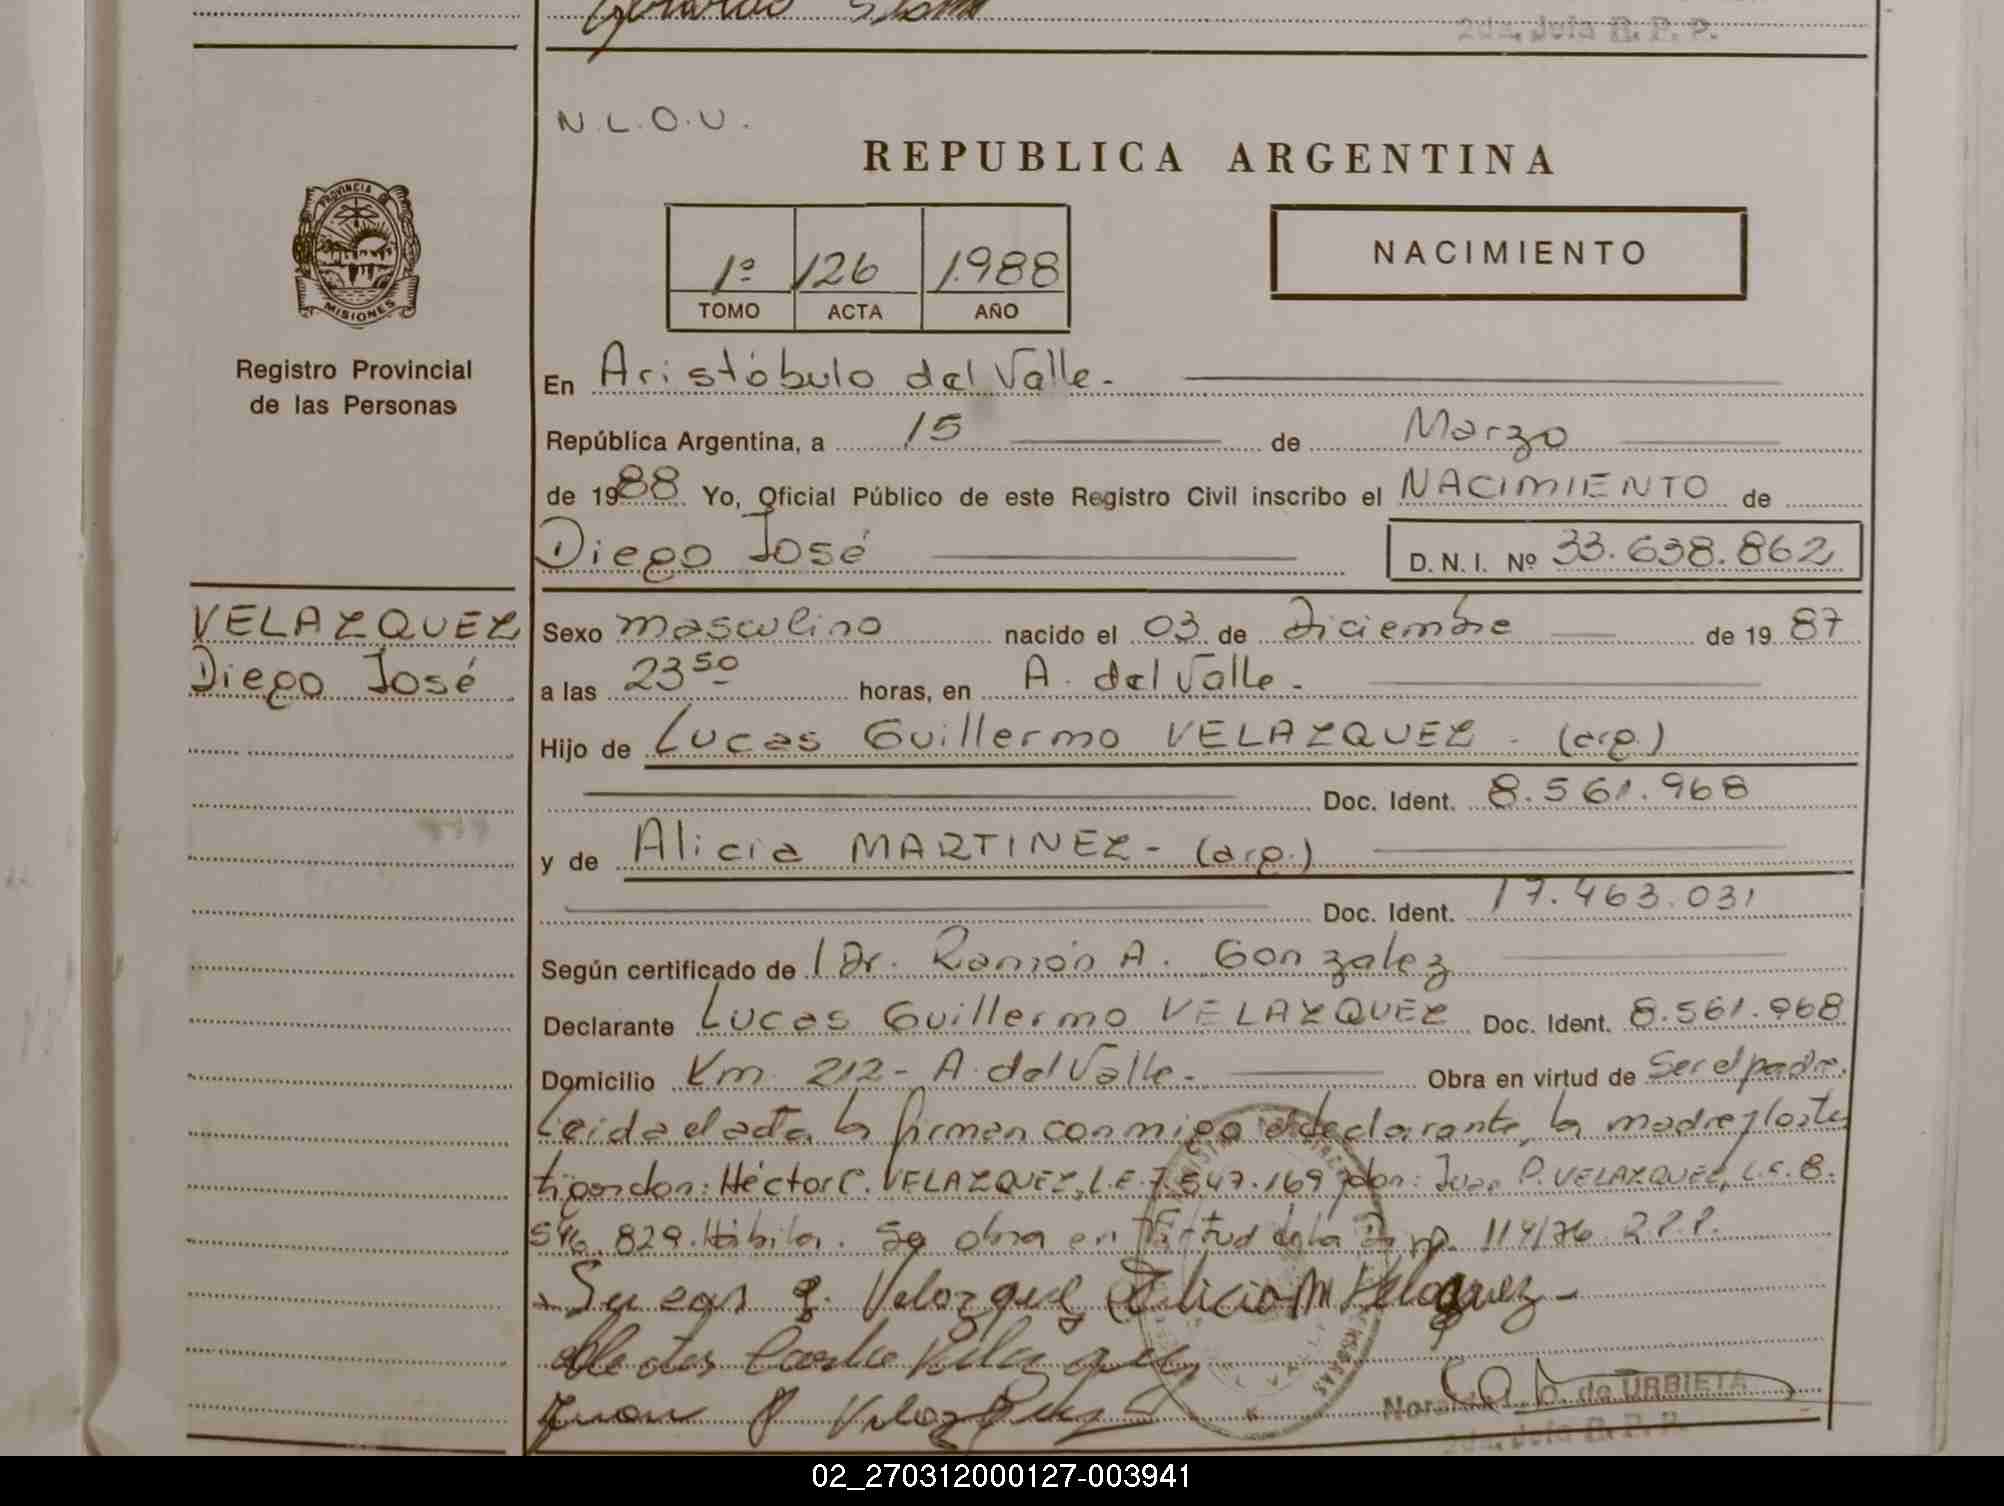 2da. Jefa R. P. P.
N.L.O.U.
REPUBLICA ARGENTINA
PROVINCIA DE
MISIONES
1º 126 1.988
TOMO ACTA AÑO
NACIMIENTO
Registro Provincial
de las Personas
En Aristóbulo del Valle.-
República Argentina, a 15 de Marzo
de 1988 Yo, Oficial Público de este Registro Civil inscribo el NACIMIENTO de
Diego José D. N. I. Nº 33.638.862
VELAZQUEZ
Diego José
Sexo masculino nacido el 03 de Diciembre de 19 87
a las 23 50 horas, en A. del Valle.-
Hijo de Lucas Guillermo VELAZQUEZ - (arg.)
Doc. Ident. 8.561.968
y de Alicia MARTINEZ - (arg.)
Doc. Ident. 17.463.031
Según certificado de Dr. Ramón A. Gonzalez
Declarante Lucas Guillermo VELAZQUEZ Doc. Ident. 8.561.968
Domicilio Km 212 - A. del Valle.- Obra en virtud de Ser el padre.
Leida el acta la firman conmigo el declarante, la madre y los tes
tigos don: Héctor C. VELAZQUEZ, L.E. 7.547.169 y don: Juan P. VELAZQUEZ, L.E. 8.
546.829. Hábiles. Se obra en Virtud de la Disp. 114/76 R.P.P.
Lucas g. Velazquez Alicia M Velazquez -
Carlos Velazquez
Juan P Velazquez
de URBIETA
2da. Jefa R. P. P.
02_270312000127-003941